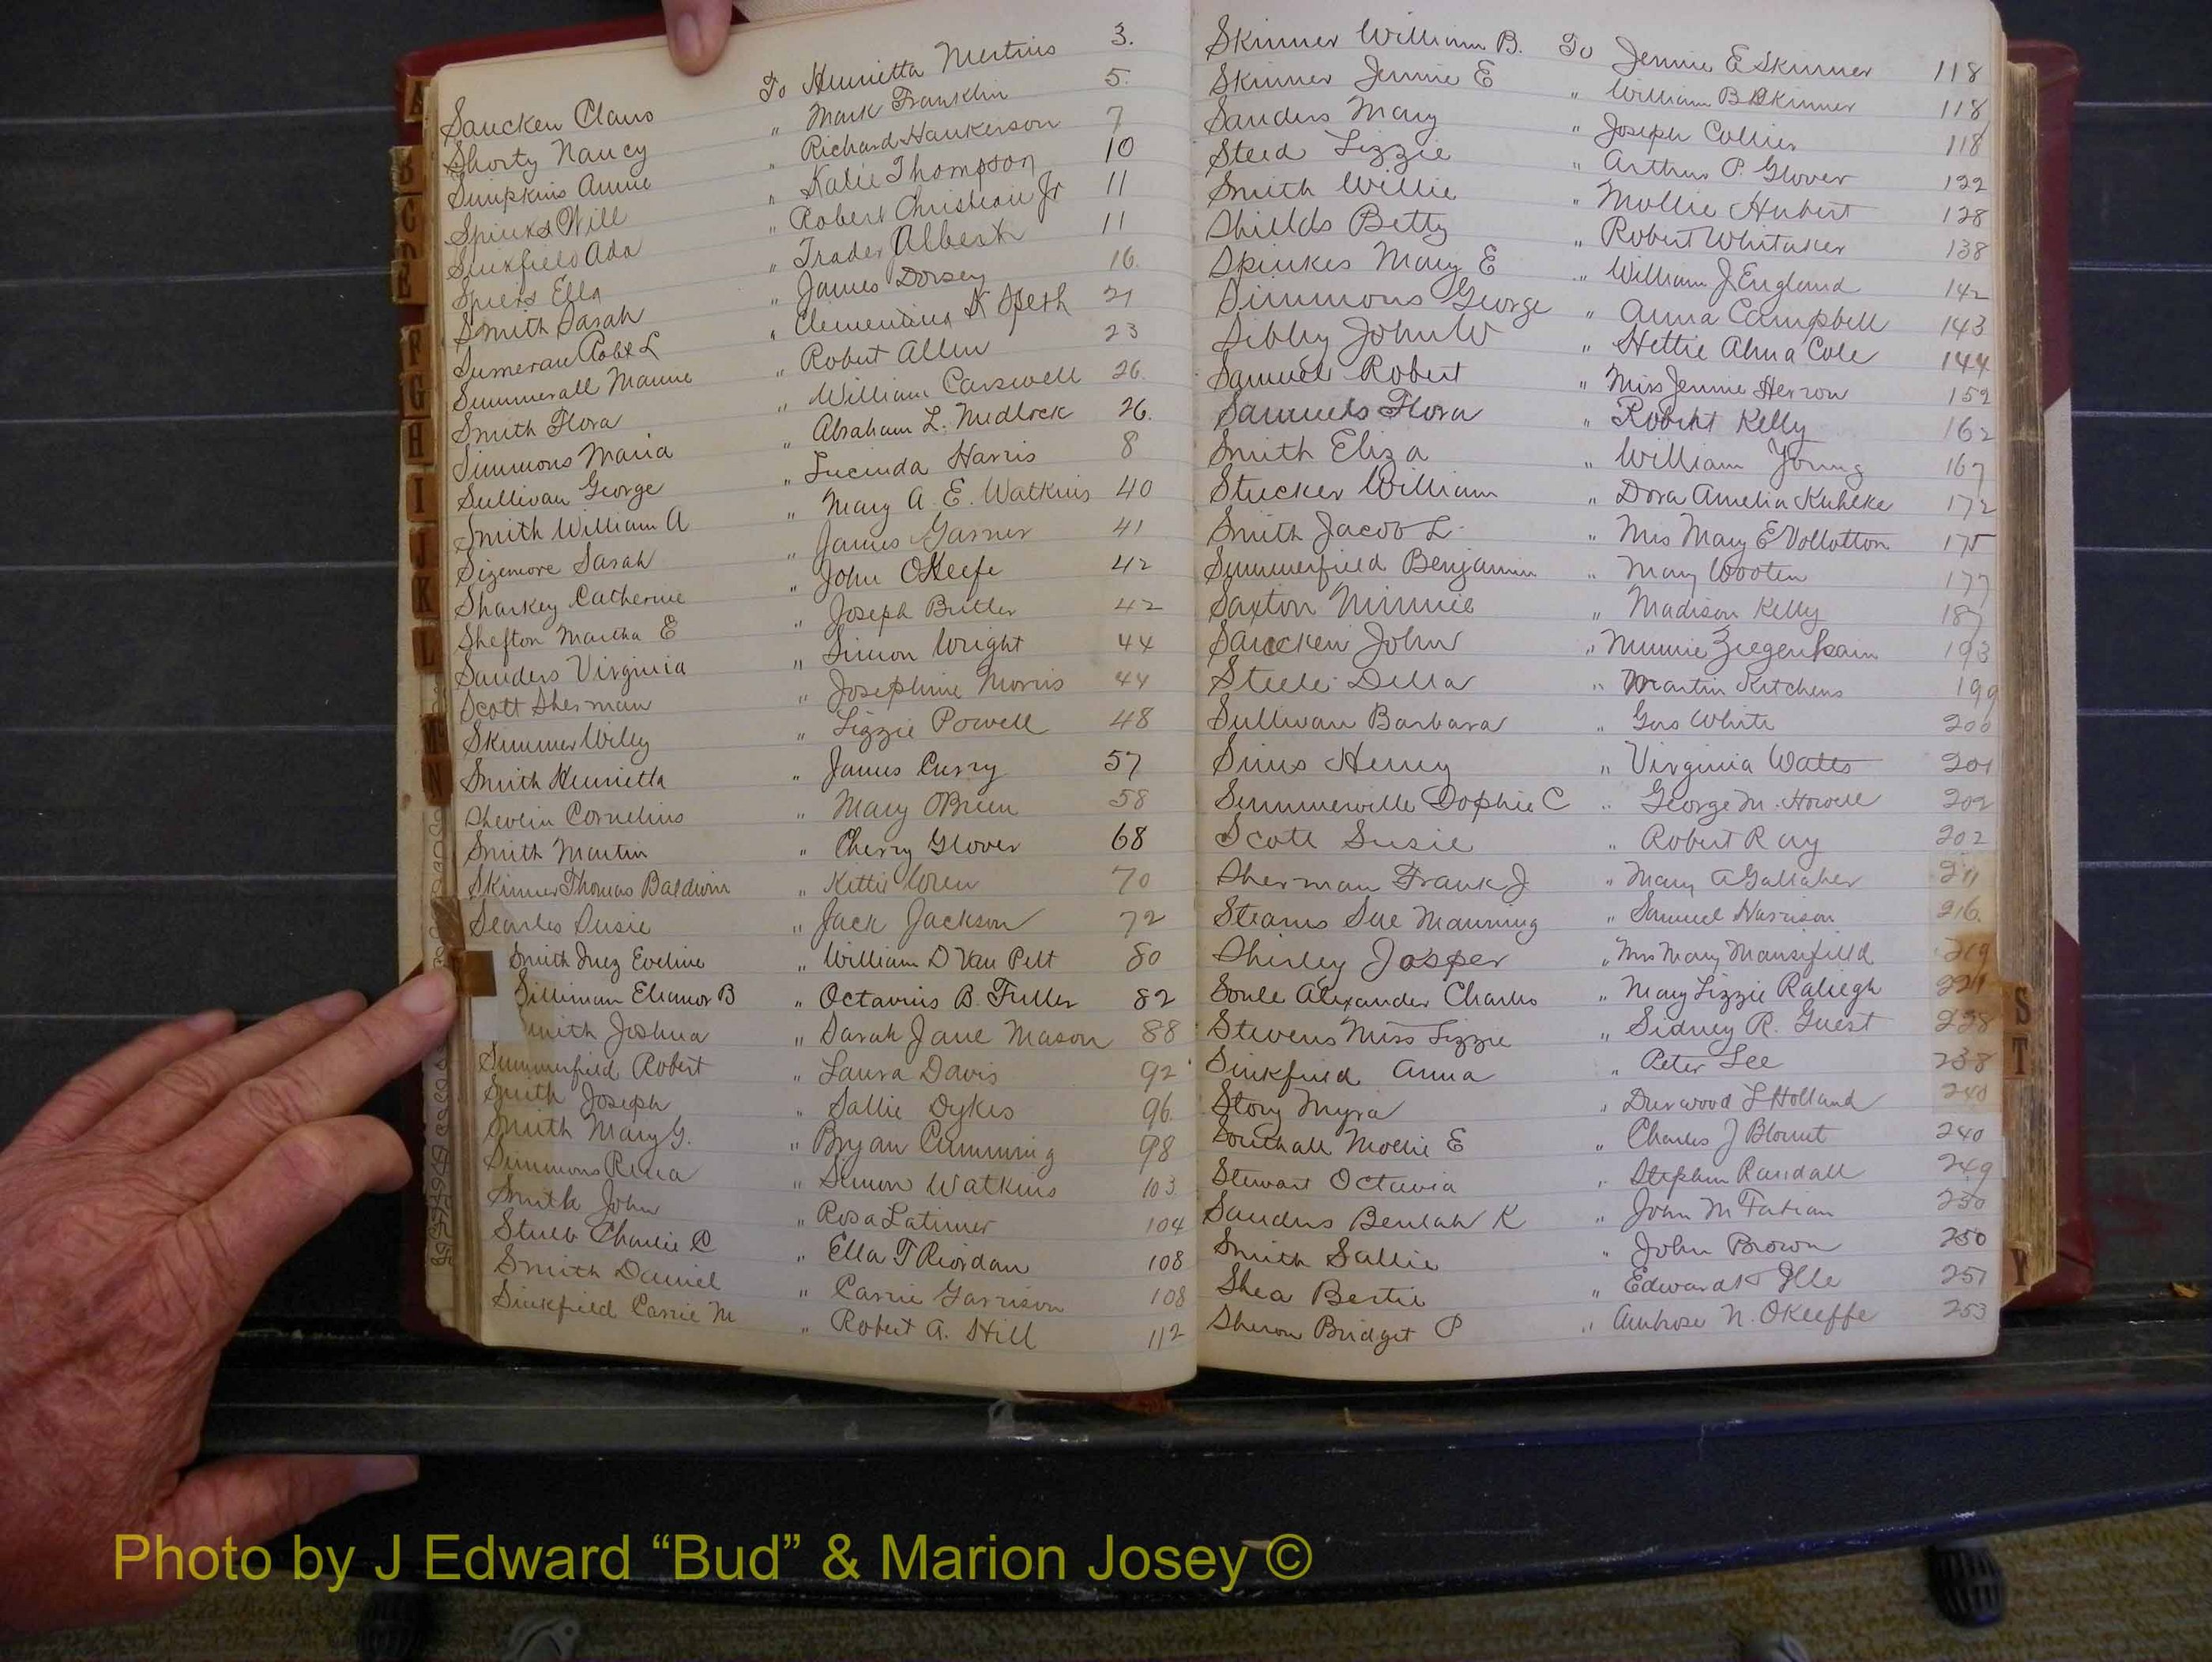 Saucken Claus To Henrietta Mertins 3.
Shorty Nancy " Mark Franklin 5.
Simpkins Annie " Richard Hankerson 7
Spinks Will " Katie Thompson 10
Sinkfield Ada " Robert Christian Jr 11
Spiers Ella " Trader Albert 11
Smith Sarah " James Dorsey 16.
Sumerau Robt L " Clementine K Speth 21
Summerall Mamie " Robert Allen 23
Smith Flora " William Carswell 26.
Simmons Maria " Abraham L. Medlock 26.
Sullivan George " Lucinda Harris 8
Smith William A " Mary A. E. Watkins 40
Sizemore Sarah " James Garner 41
Sharkey Catherine " John OKeefe 42
Shefton Martha E " Joseph Butler 42
Sanders Virginia " Simon Wright 44
Scott Sherman " Josephine Morris 44
Skinner Wiley " Lizzie Powell 48
Smith Henrietta " James Curry 57
Shevlin Cornelius " Mary OBrien 58
Smith Martin " Cherry Glover 68
Skinner Thomas Baldwin " Kittie Wren 70
Searles Susie " Jack Jackson 72
Smith Inez Eveline " William D Van Pelt 80
Silliman Eleanor B " Octavius B. Fuller 82
Smith Joshua " Sarah Jane Mason 88
Summerfield Robert " Laura Davis 92
Smith Joseph " Sallie Dykes 96
Smith Mary G. " Bryan Cumming 98
Simmons Rena " Simon Watkins 103
Smith John " Rosa Latimer 104
Stulb Charlie C " Ella T Riordan 108
Smith Daniel " Carrie Garrison 108
Sinkfield Carrie M " Robert A. Hill 112
Skinner William B. To Jennie E Skinner 118
Skinner Jennie E " William B Skinner 118
Sanders Mary " Joseph Collier 118
Steed Lizzie " Arthur P. Glover 122
Smith Willie " Mollie Hubert 128
Shields Betty " Robert Whitaker 138
Spinkes Mary E " William J England 142
Simmons George " Anna Campbell 143
Sibley John W " Hettie Alma Cole 144
Samuel Robert " Miss Jennie Herron 152
Samuels Flora " Robert Kelly 162
Smith Eliza " William Young 167
Stucker William " Dora Amelia Kuhlke 172
Smith Jacob L. " Mrs Mary E Vollotton 175
Summerfield Benjamin " Mary Wooten 177
Saxton Minnie " Madison Kelly 187
Saucken John " Minnie Ziegenhain 193
Steele Della " Martin Kitchens 199
Sullivan Barbara " Gus White 200
Sims Henry " Virginia Watts 201
Summerville Sophie C " George M. Howell 202
Scott Susie " Robert Ray 202
Sherman Frank J " Mary A Gallaher 211
Stearns Sue Manning " Samuel Harrison 216.
Shirley Jasper " Mrs Mary Mansifield 219
Soule Alexander Charles " Mary Lizzie Raliegh 224
Stevens Miss Lizzie " Sidney R. Guest 228
Sinkfield Anna " Peter Lee 238
Story Myra " Durwood L Holland 240
Southall Mollie E " Charles J Blount 240
Stewart Octavia " Stephen Randall 249
Sanders Beulah K " John M Fabian 250
Smith Sallie " John Brown 250
Shea Bertie " Edward 251
Sheron Bridget P " Ambrose N. OKeeffe 253
A
B
C
D
E
F
G
H
I
J
K
L
M
N
S
T
Y
Photo by J Edward “Bud” & Marion Josey ©